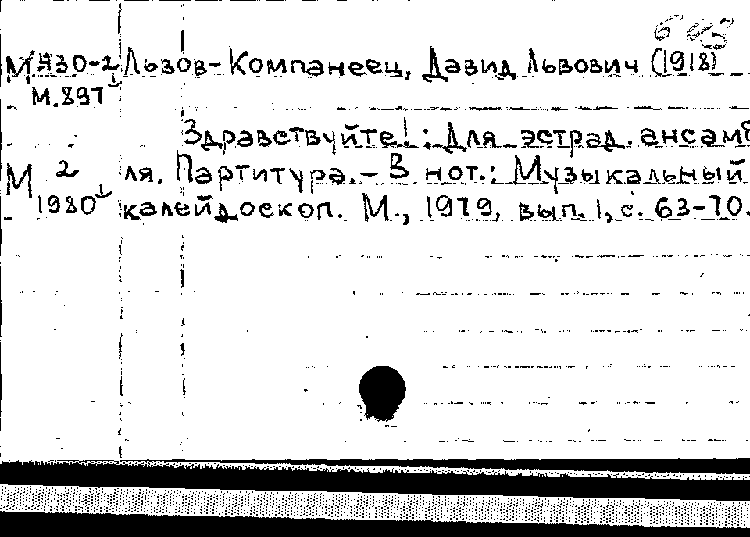 М Я30-2 Львов-Компанеец, Давид Львович (1918)
М.897
Здравствуйте! : Для эстрад. ансамб
М 2 ля. Партитура. – В нот.: Музыкальный
1980 калейдоскоп. М., 1979, вып. 1, с. 63-70.